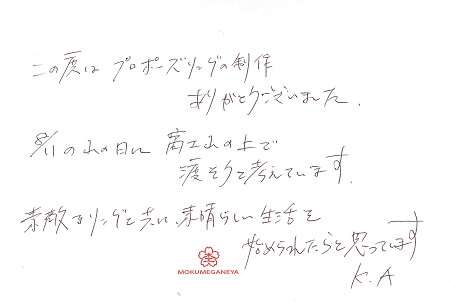 この度は プロポーズリングの制作
ありがとうございました。
8/11の山の日に 富士山の上で
渡そうと考えています。
素敵なリングと共に、素晴らしい生活を
始められたらと思ってます
K.A
MOKUMEGANEYA